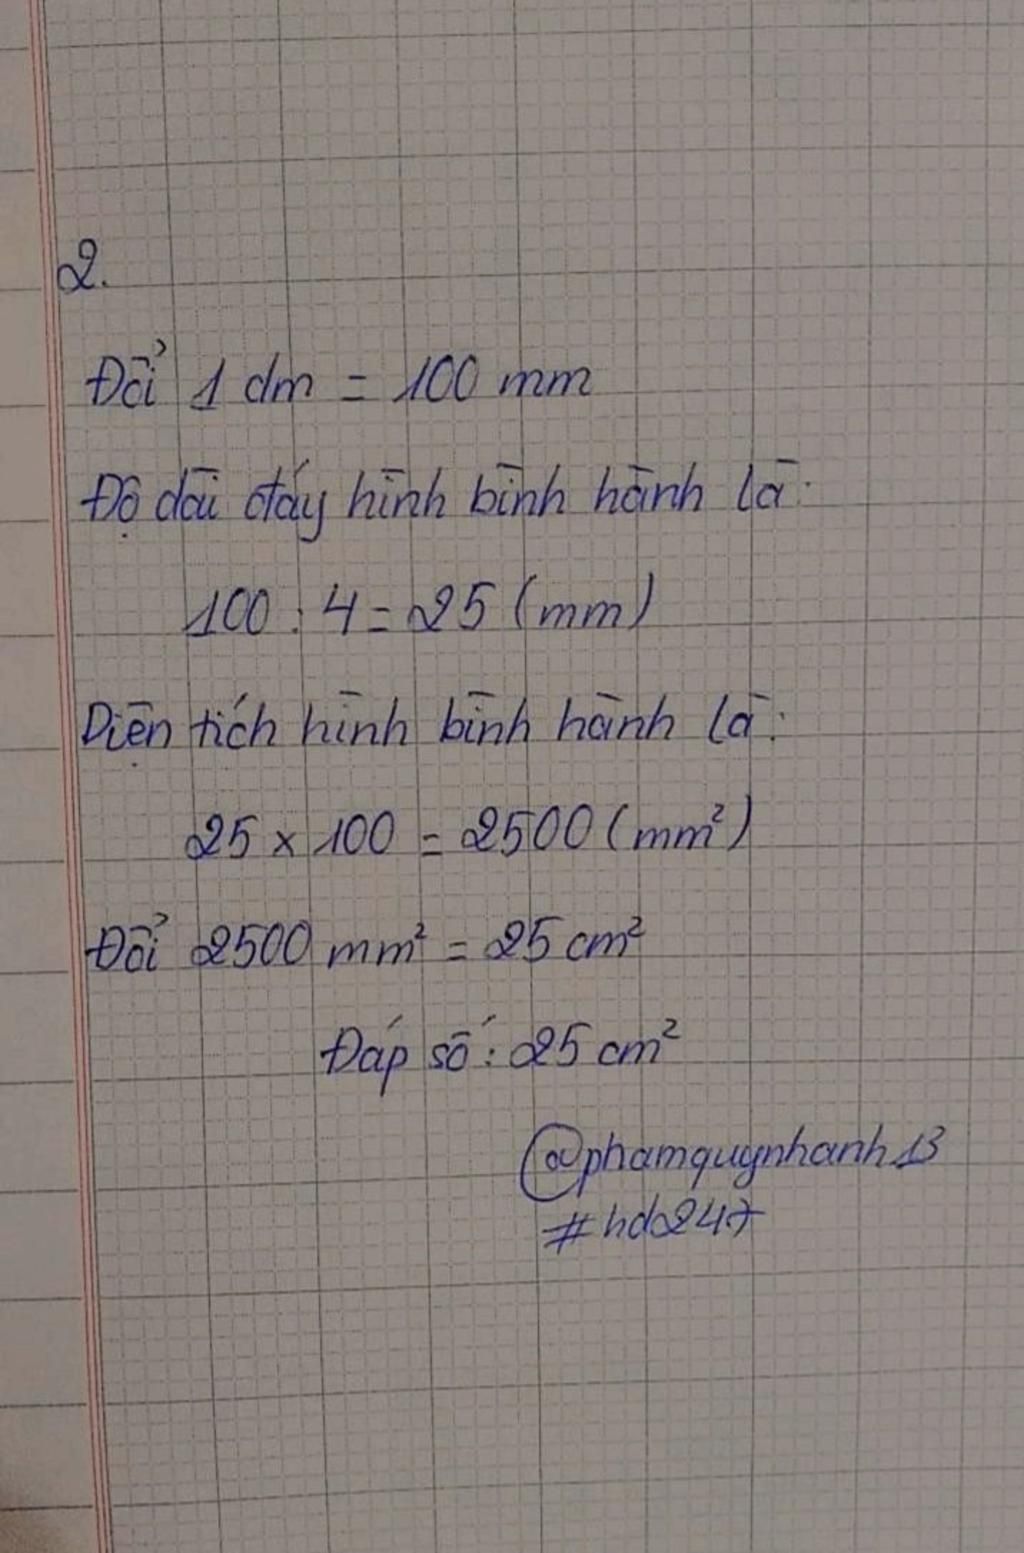 2.
Đổi 1 dm = 100 mm
Độ dài đáy hình bình hành là:
100 : 4 = 25 (mm)
Diện tích hình bình hành là:
25 x 100 = 2500 (mm²)
Đổi 2500 mm² = 25 cm²
Đáp số : 25 cm²
@phamquynhanh13
#hdo247